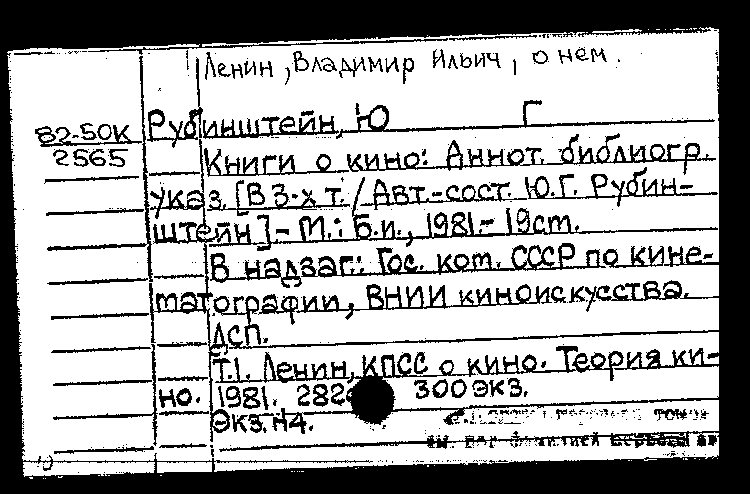 Ленин, Владимир Ильич, о нем.
82-50К
2565
Рубинштейн, Ю Г
Книги о кино: Аннот. библиогр.
указ. [В 3-х т. / Авт.-сост. Ю.Г. Рубин-
штейн] - М.: Б.и., 1981.- 19см.
В надзаг.: Гос. ком. СССР по кине-
матографии, ВНИИ киноискусства.
ДСП.
Т.1. Ленин, КПСС о кино. Теория ки-
но. 1981. 282 300 экз.
Экз. №4.
томов
см. под фамилией первого ав
10